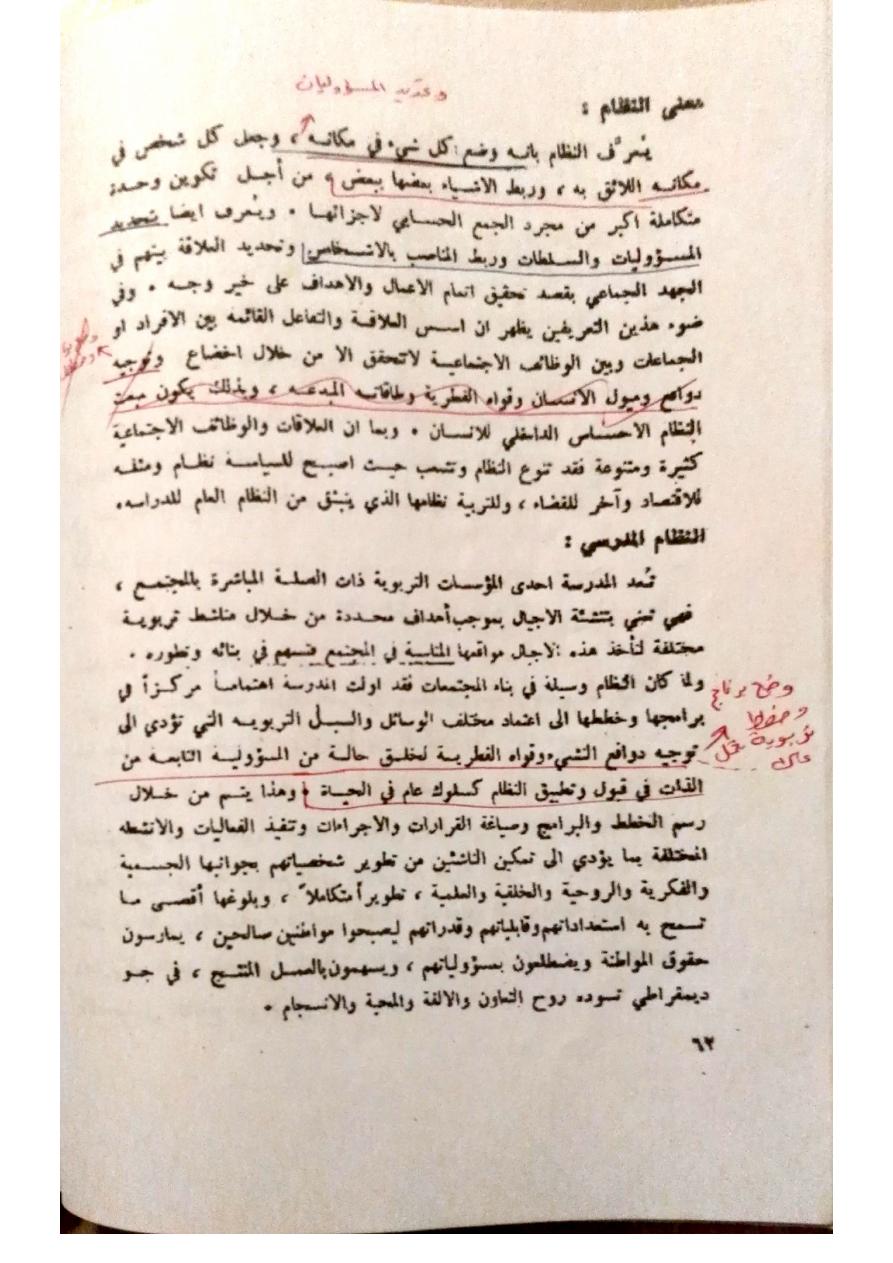 وتحديد المسؤوليات
معنى النظام :
يُعرَّف النظام بانه وضع كل شيء في مكانه ، وجعل كل شخص في
مكانه اللائق به ، وربط الاشياء بعضها ببعض ، من أجل تكوين وحدة
متكاملة اكبر من مجرد الجمع الحسابي لاجزائها . ويُعرف ايضا تحديد
المسؤوليات والسلطات وربط المناصب بالاشخاص وتحديد العلاقة بينهم في
الجهد الجماعي بقصد تحقيق اتمام الاعمال والاهداف على خير وجه . وفي
ضوء هذين التعريفين يظهر ان اسس العلاقة والتفاعل القائمه بين الافراد او
الجماعات وبين الوظائف الاجتماعية لاتتحقق الا من خلال اخضاع وتوجيه
دوافع وميول الانسان وقواه الفطرية وطاقاته المبدعه ، وبذلك يكون مبعث
النظام الاحساس الداخلي للانسان . وبما ان العلاقات والوظائف الاجتماعية
كثيرة ومتنوعة فقد تنوع النظام وتشعب حيث اصبح للسياسة نظام ومثله
للاقتصاد وآخر للقضاء ، وللتربية نظامها الذي ينبثق من النظام العام للدراسه.
النظام المدرسي :
تُعد المدرسة احدى المؤسسات التربوية ذات الصلة المباشرة بالمجتمع ،
فهي تعني بتنشئة الاجيال بموجب أهداف محددة من خلال مناشط تربوية
مختلفة لتأخذ هذه الاجيال مواقعها المناسبة في المجتمع فتسهم في بنائه وتطوره .
ولما كان النظام وسيلة في بناء المجتمعات فقد اولت المدرسة اهتماماً مركزاً في
برامجها وخططها الى اعتماد مختلف الوسائل والسبل التربويه التي تؤدي الى
توجيه دوافع النشيء وقواه الفطرية لخلق حالة من المسؤولية النابعة من
الذات في قبول وتطبيق النظام كسلوك عام في الحياة ، وهذا يتم من خلال
رسم الخطط والبرامج وصياغة القرارات والاجراءات وتنفيذ الفعاليات والانشطه
المختلفة بما يؤدي الى تمكين الناشئين من تطوير شخصياتهم بجوانبها الجسمية
والفكرية والروحية والخلقية والعلمية ، تطويراً متكاملاً ، وبلوغها أقصى ما
تسمح به استعداداتهم وقابلياتهم وقدراتهم ليصبحوا مواطنين صالحين ، يمارسون
حقوق المواطنة ويضطلعون بمسؤولياتهم ، ويسهمون بالعمل المنتج ، في جو
ديمقراطي تسوده روح التعاون والالفة والمحبة والانسجام .
وضع برنامج
تربوية تعمل
على
٦٢